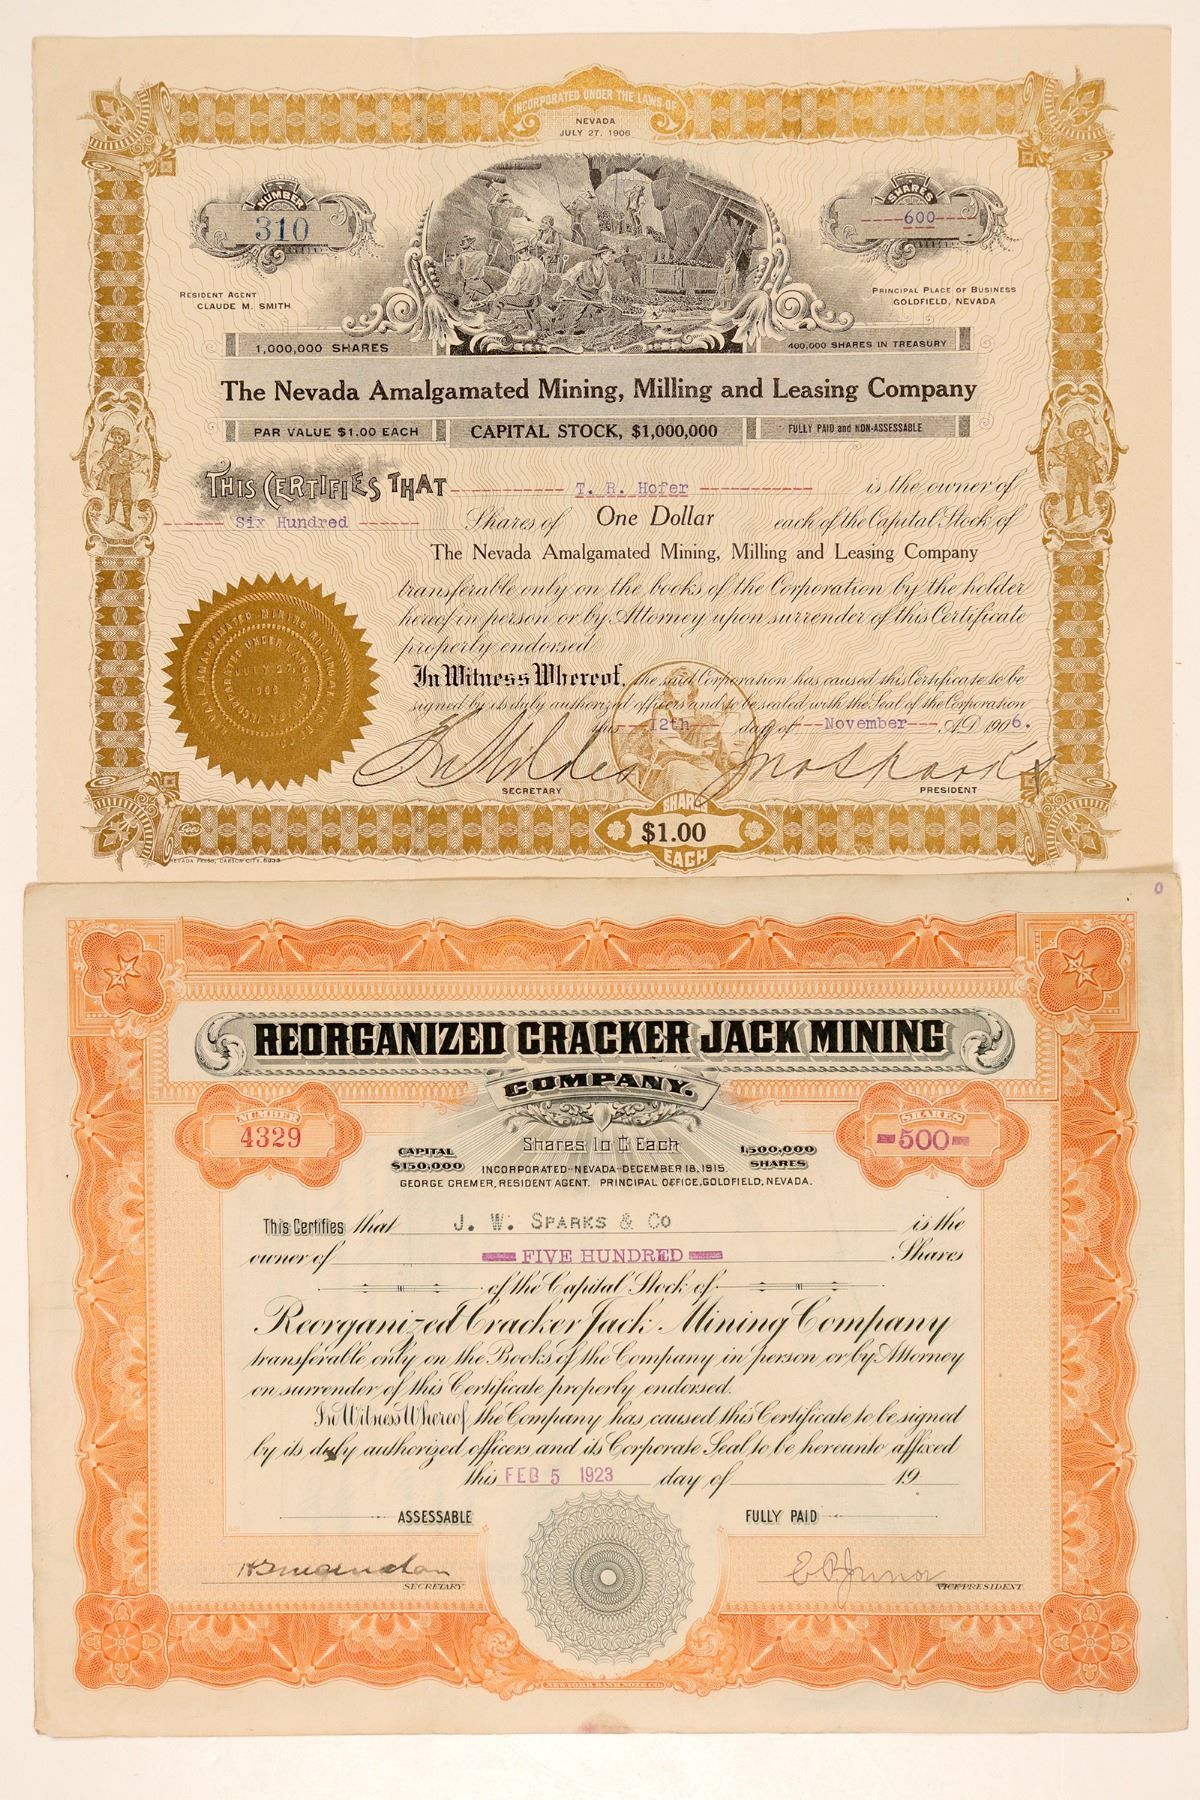 INCORPORATED UNDER THE LAWS OF
NEVADA
JULY 27, 1906
NUMBER
310
SHARES
----600----
RESIDENT AGENT
CLAUDE M. SMITH
PRINCIPAL PLACE OF BUSINESS
GOLDFIELD, NEVADA
1,000,000 SHARES
400,000 SHARES IN TREASURY
The Nevada Amalgamated Mining, Milling and Leasing Company
PAR VALUE $1.00 EACH
CAPITAL STOCK, $1,000,000
FULLY PAID and NON-ASSESSABLE
THIS CERTIFIES THAT ---------- T. R. Hofer ---------- is the owner of
------ Six Hundred ------ Shares of One Dollar each of the Capital Stock of
The Nevada Amalgamated Mining, Milling and Leasing Company
transferable only on the books of the Corporation by the holder
hereof in person or by Attorney upon surrender of this Certificate
properly endorsed
In Witness Whereof, the said Corporation has caused this Certificate to be
signed by its duly authorized officers and to be sealed with the Seal of the Corporation
this ---12th--- day of ---November--- A.D. 1906.
SECRETARY
Jno Sparks
PRESIDENT
SHARES
$1.00
EACH
REORGANIZED CRACKER JACK MINING
COMPANY.
NUMBER
4329
SHARES
=500=
Shares 10 ¢ Each
CAPITAL
$150,000
1,500,000
SHARES
INCORPORATED--NEVADA--DECEMBER 18, 1915.
GEORGE CREMER, RESIDENT AGENT. PRINCIPAL OFFICE, GOLDFIELD, NEVADA.
This Certifies that J. W. SPARKS & CO is the
owner of FIVE HUNDRED Shares
of the Capital Stock of
Reorganized Cracker Jack Mining Company
transferable only on the Books of the Company in person or by Attorney
on surrender of this Certificate properly endorsed.
In Witness Whereof the Company has caused this Certificate to be signed
by its duly authorized officers and its Corporate Seal to be hereunto affixed
this FEB 5 1923 day of 19
ASSESSABLE
FULLY PAID
SECRETARY
VICE PRESIDENT.
NEW YORK BANK NOTE CO.